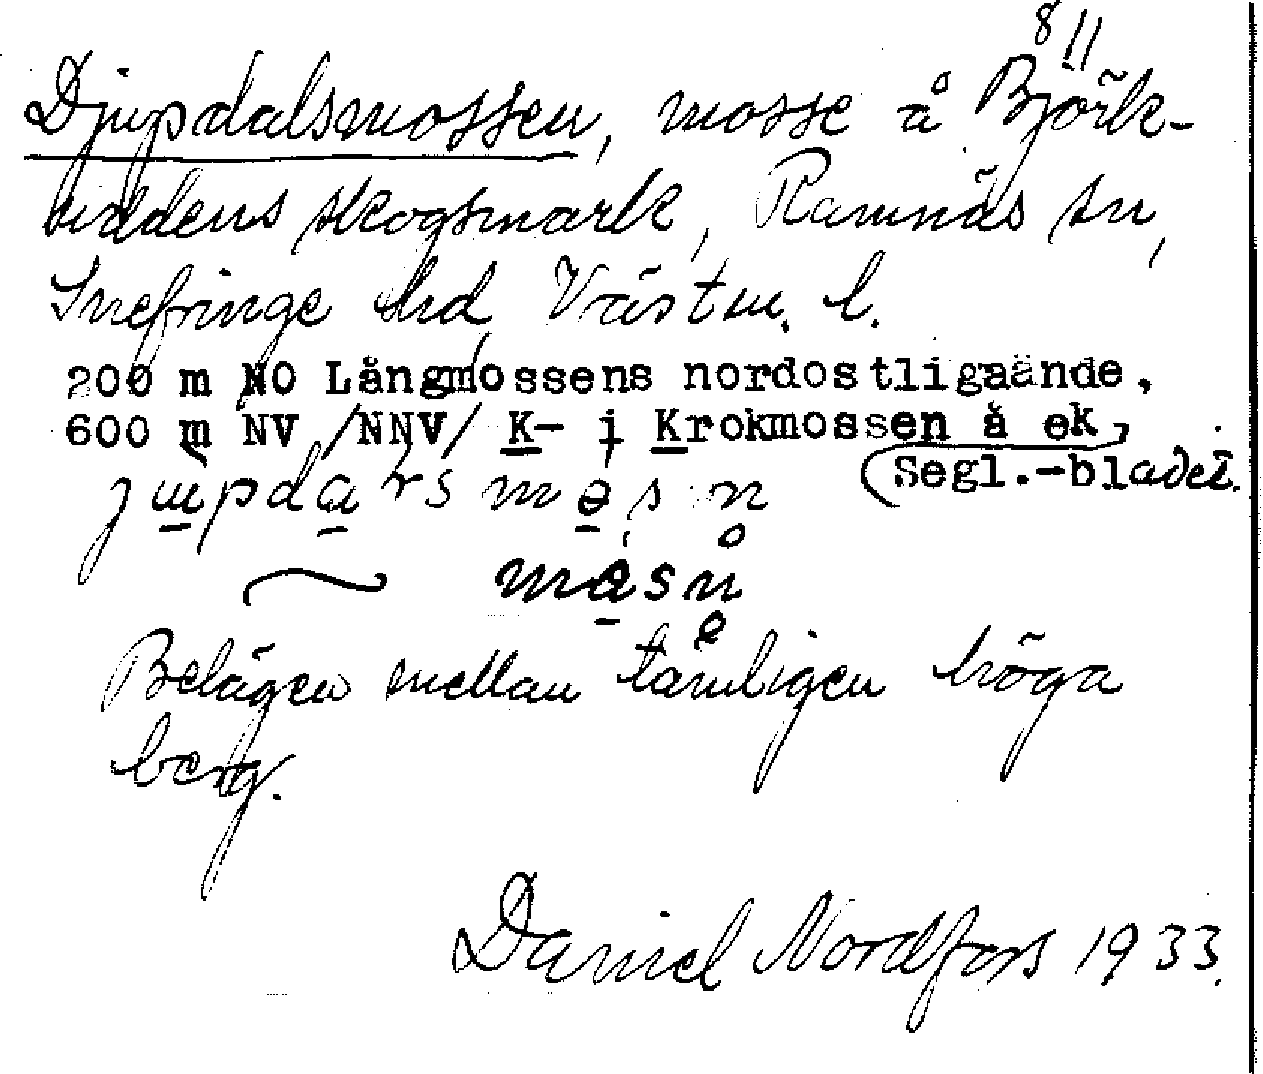 8 11
Djupdalsmossen, mosse å Björk-
uddens skogsmark, Ramnäs sn,
Snefringe hd Västm. l.
200 m NO Långmossens nordostligaände,
600 m NV /NNV/ K- i Krokmossen å ek,
Segl.-bladet.
jupdarsmosn
~ måsn
Belägen mellan tämligen höga
berg.
Daniel Nordfors 1933.